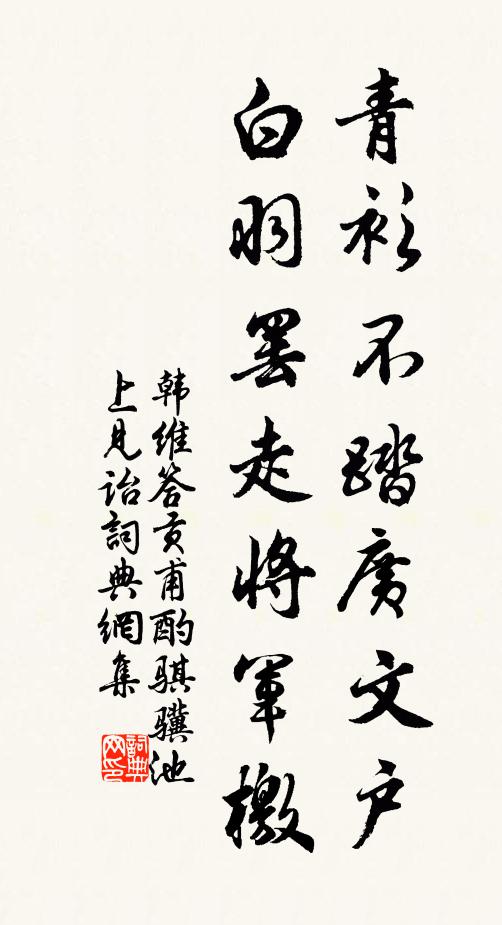 青衫不踏广文户
白羽罢走将军檄
韩维答贡甫酌骐骥池
上见诒詞典網集
詞典
网印